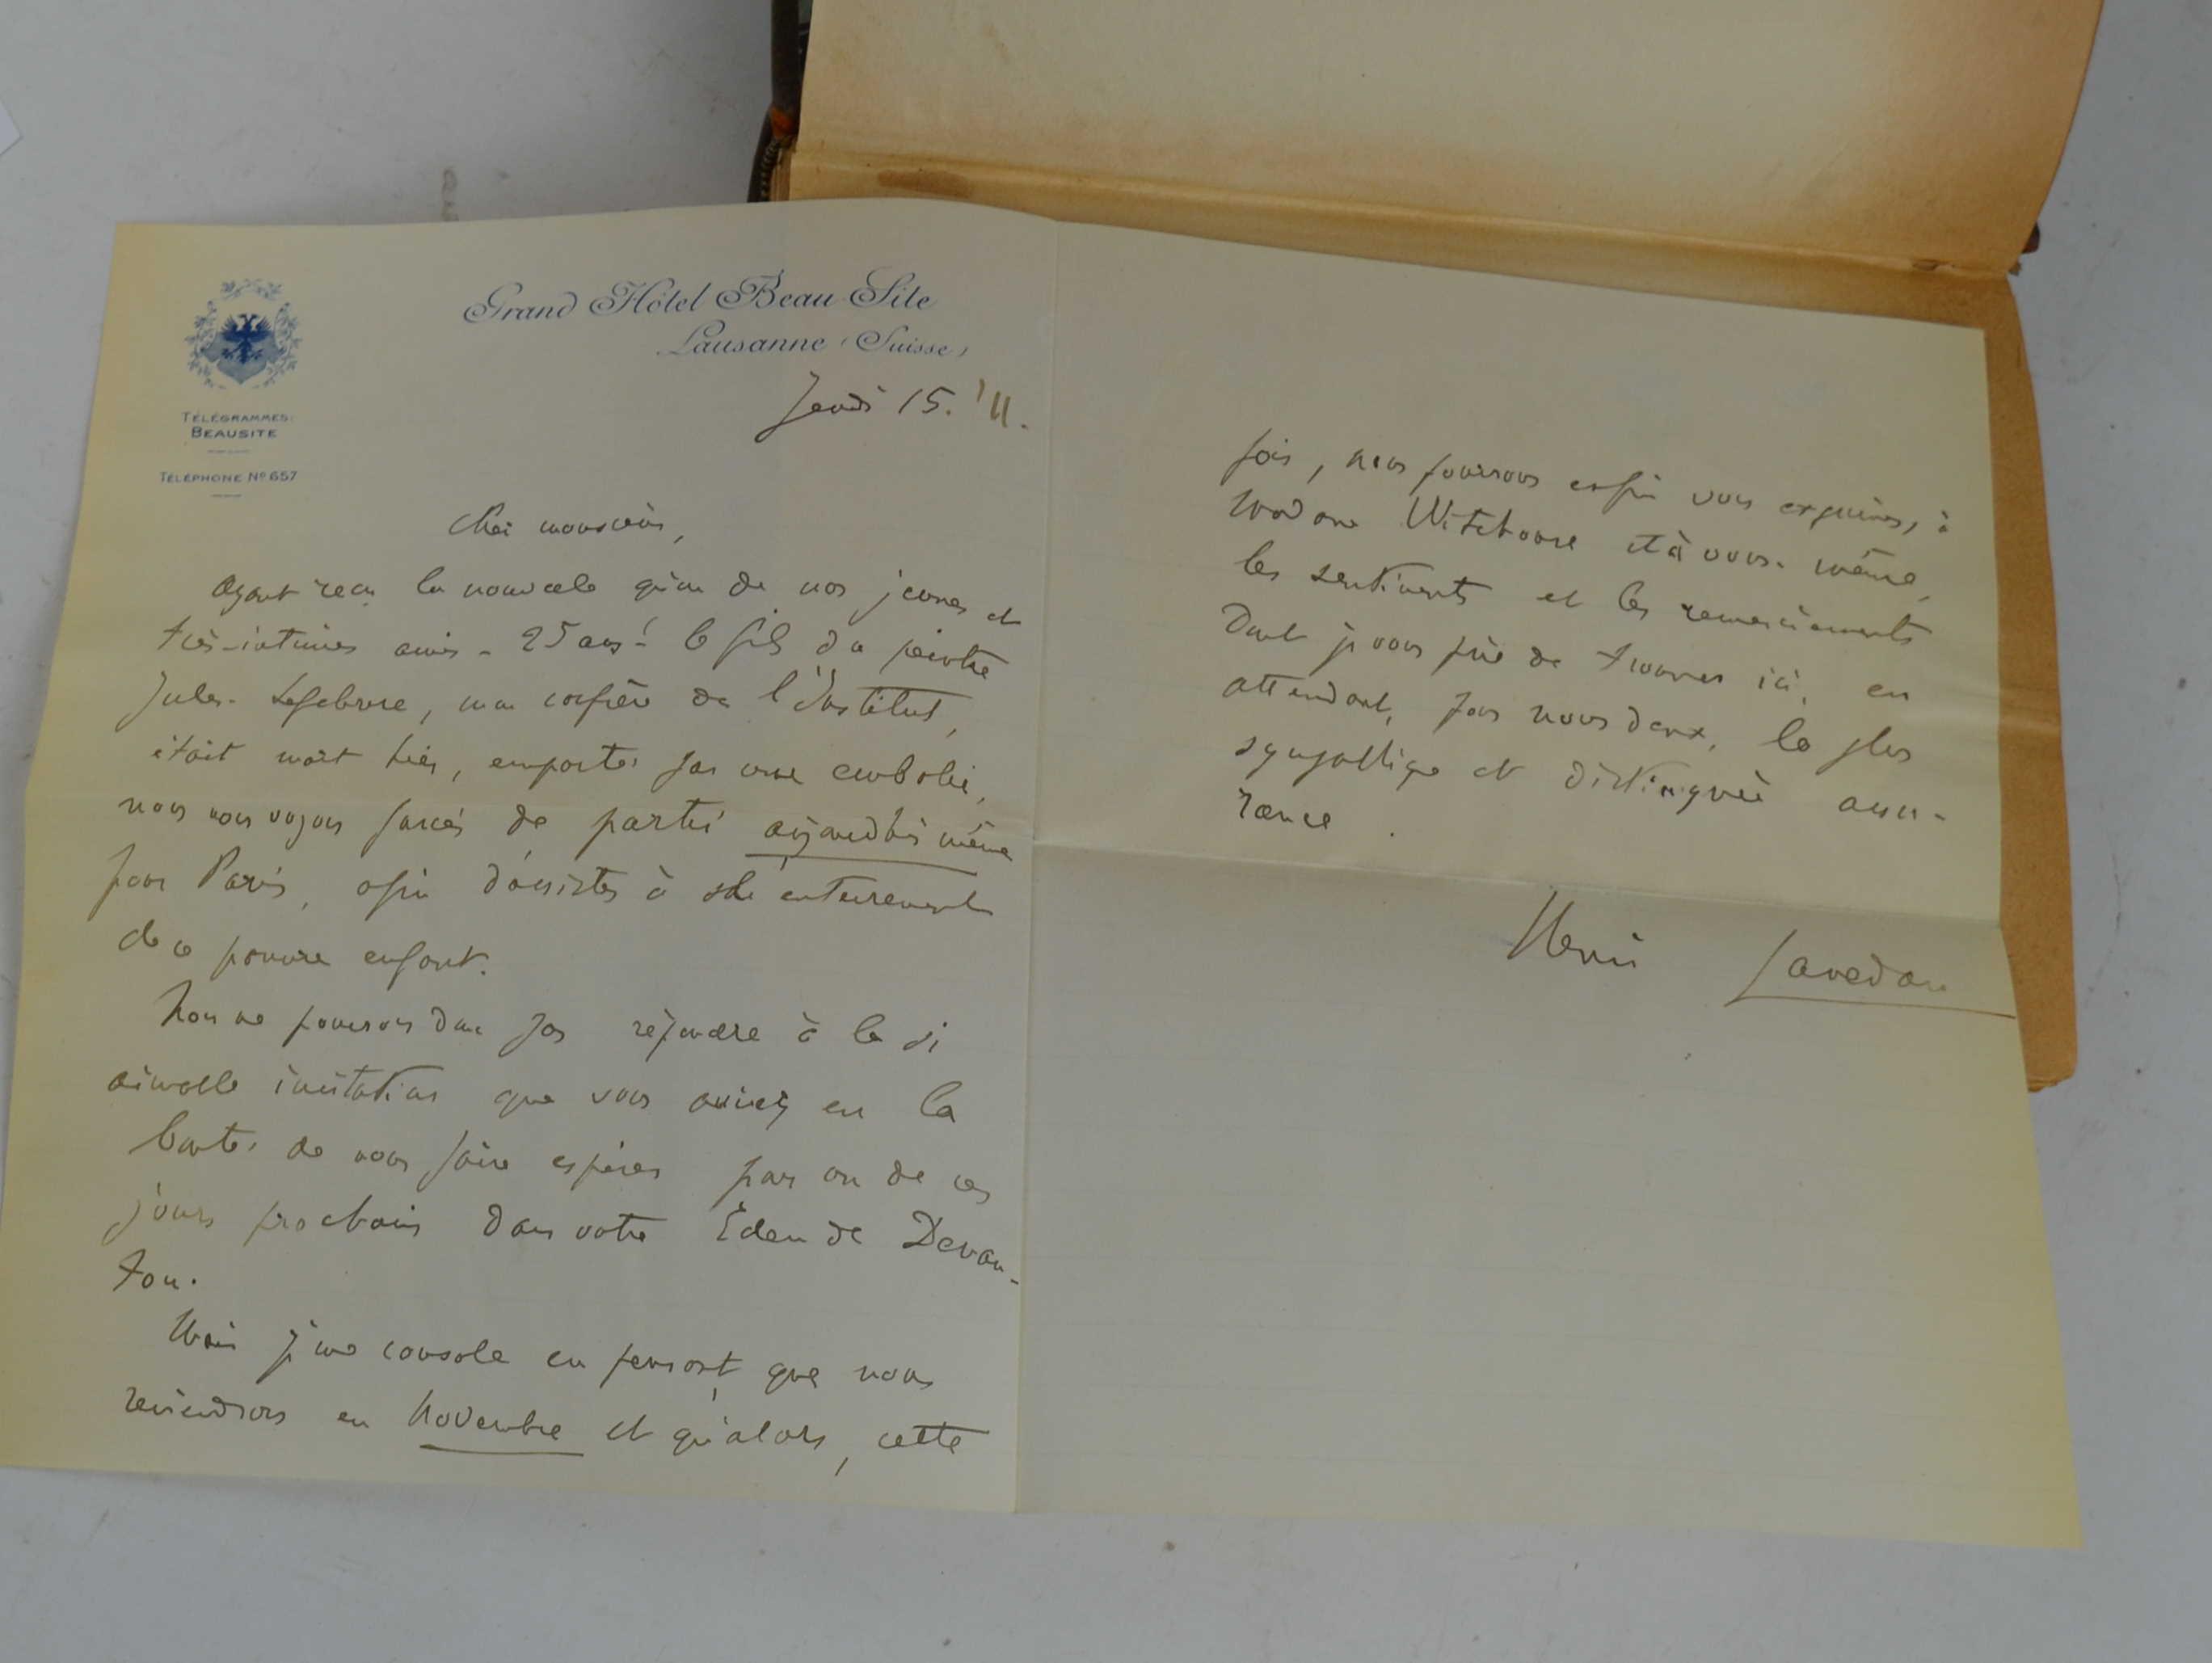 Grand Hôtel Beau-Site
Lausanne (Suisse)
TÉLÉGRAMMES:
BEAUSITE
TÉLÉPHONE Nº 657
Jeudi 15. '11.
Cher monsieur,
Ayant reçu la nouvelle qu'un de nos jeunes et
très-intimes amis - 25 ans! - le fils du peintre
Jules-Lefebvre, mon confrère de l'Institut,
était mort hier, emporté par une embolie,
nous nous voyons forcés de partir aujourd'hui même
pour Paris, afin d'assister à l'enterrement
de ce pauvre enfant.
Nous ne pourrons donc pas répondre à la si
aimable invitation que vous aviez eu la
bonté de nous faire espérer par un de ces
jours prochains dans votre Éden de Denan-
tou.
Mais je me console en pensant que nous
reviendrons en Novembre et qu'alors, cette
fois, nous pourrons enfin vous exprimer, à
Madame Witehouse et à vous-même,
les sentiments et les remerciements
dont je vous prie de trouver ici, en
attendant, pour nous deux, la plus
sympathique et distinguée assu-
rance.
Henri Lavedan